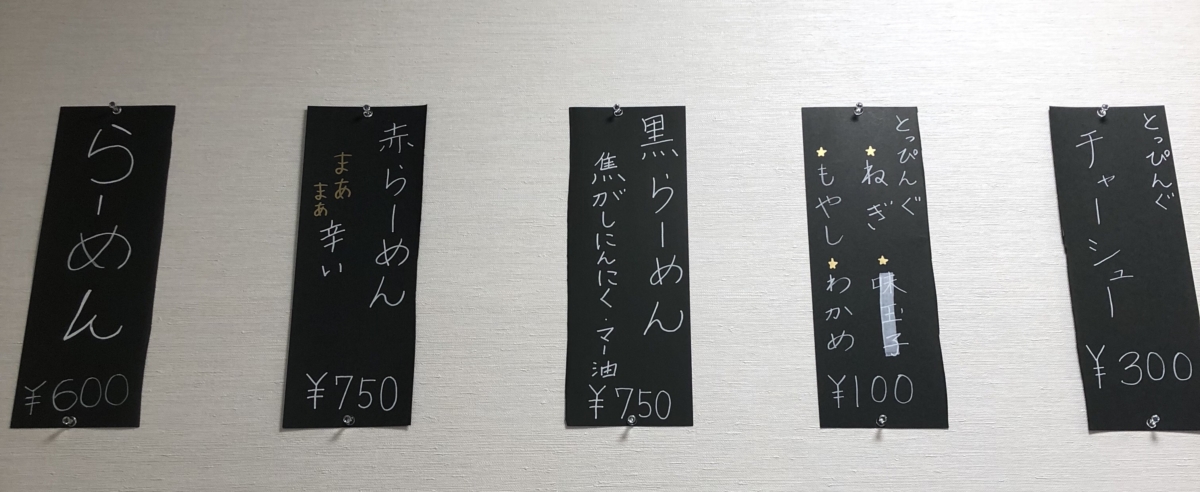 らーめん
¥600
赤らーめん
まあ
まあ
辛い
¥750
黒らーめん
焦がしにんにく・マー油
¥750
とっぴんぐ
★ねぎ
★味玉子
★もやし
★わかめ
¥100
とっぴんぐ
チャーシュー
¥300